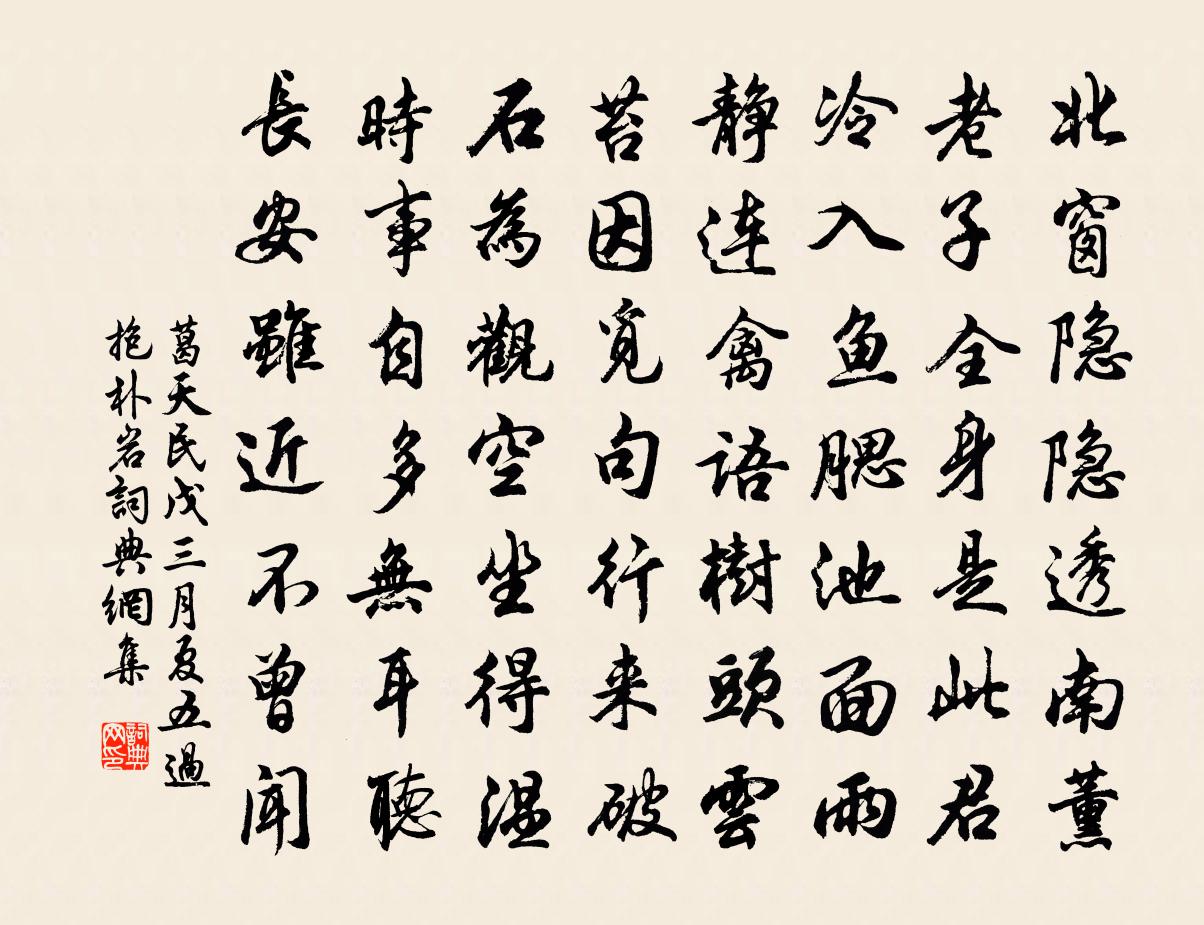 北窗隐隐透南薰
老子全身是此君
冷入鱼腮池面雨
静连禽语樹頭雲
苔因觅句行来破
石為觀空坐得温
時事自多無耳聽
長安雖近不曾闻
葛天民戊三月夏五過
抱朴岩詞典網集
詞典网印